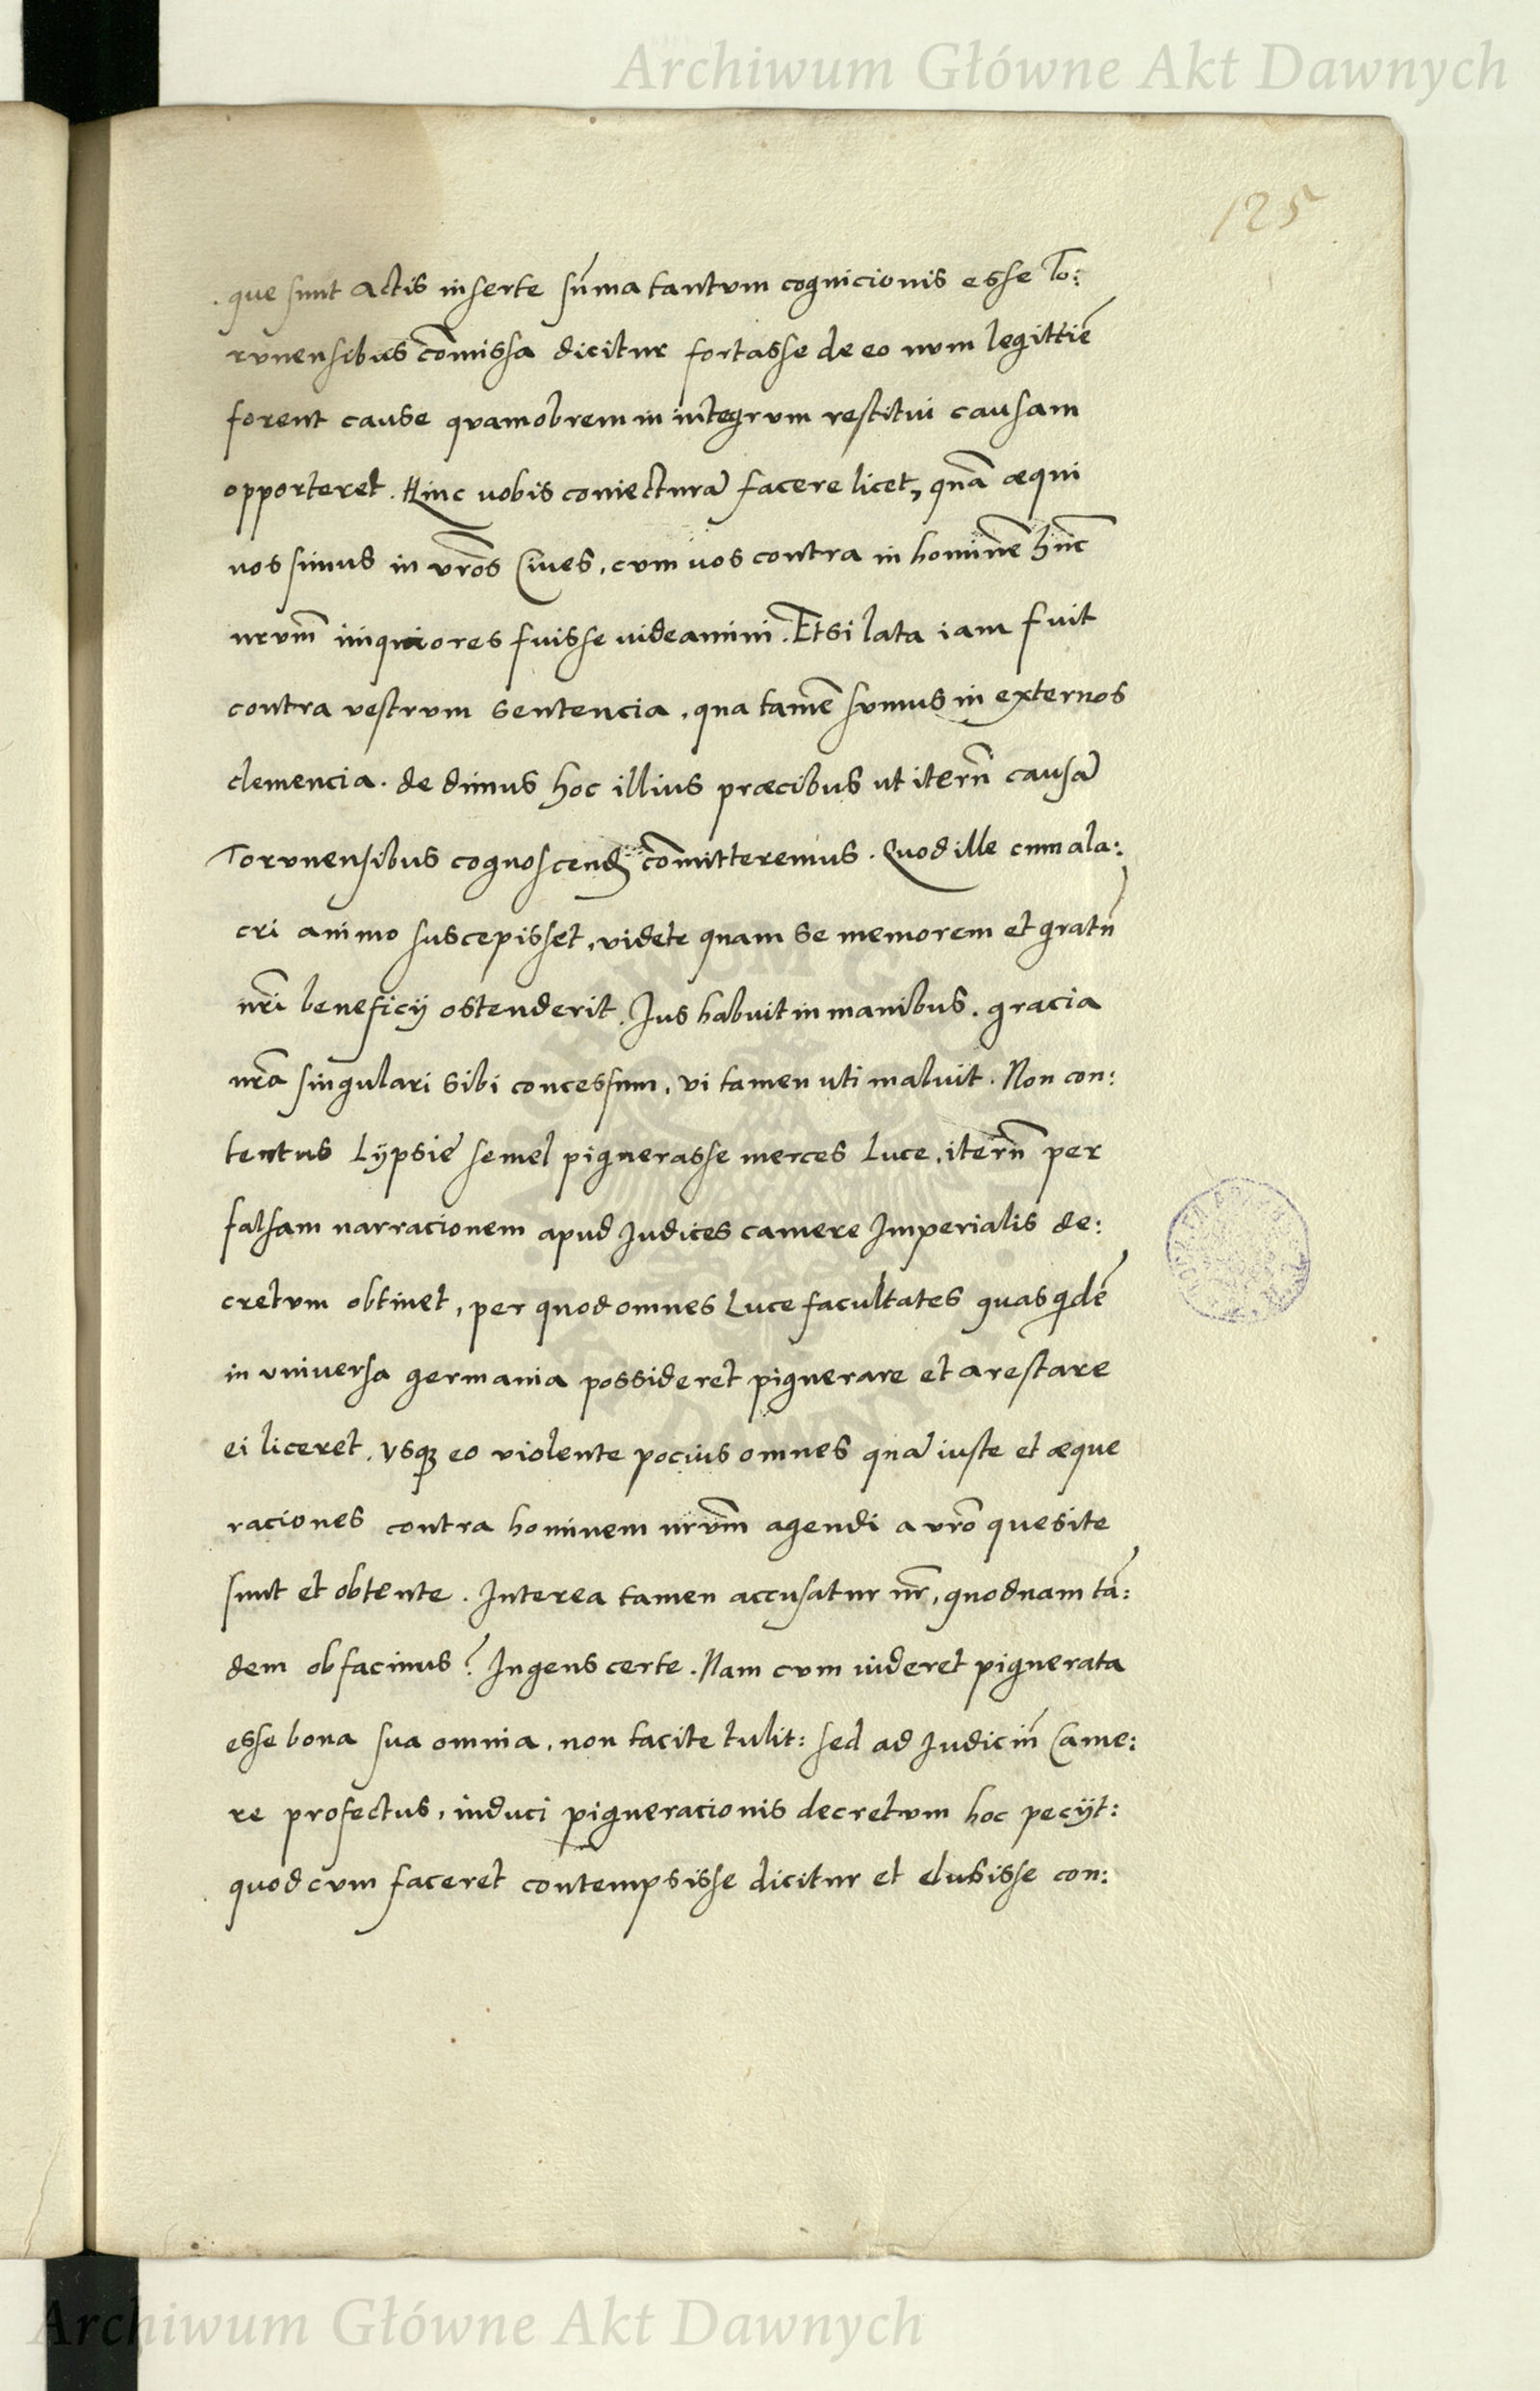 Archiwum Główne Akt Dawnych
125
que sunt actis inserte sūma tantvm cognicionis esse To:
rvnensibus cōmissa dicitur fortasse de eo nvm legittiē
forent cause qvamobrem in integrvm restitui causam
opporteret. Hinc uobis coniecturā facere licet, quā æqui
nos simus in vr̄os Ciues, cvm uos contra in hominē hūc
nrvm̄ iniquiores fuisse uideamini. Etsi lata iam fuit
contra vestrvm sentencia, qua tamē sumus in externos
clemencia. dedimus hoc illius præcibus ut iterū causā
Torvnensibus cognoscend cōmitteremus. Quod ille cum ala:
cri animo suscepisset, videte quam se memorem et gratū
nr̄i beneficij ostenderit. Jus habuit in manibus, gracia
nr̄a singulari sibi concessum, vi tamen uti maluit. Non con:
tentus Lypsiē semel pignerasse merces Luce, iterū per
falsam narracionem apud Judices camere Imperialis de:
cretvm obtinet, per quod omnes Luce facultates quas qidē
in vniuersa germania possideret pignerare et arestare
ei liceret. Vsq; eo violente pocius omnes quā iuste et æque
raciones contra hominem nrvm̄ agendi a vr̄o quesite
sunt et obtente. Interea tamen accusatur nr̄, quodnam tā:
dem ob facinus? Ingens certe. Nam cvm uideret pignerata
esse bona sua omnia, non tacite tulit: sed ad Judiciū Came:
re profectus, induci pigneracionis decretvm hoc pecijt:
quod cvm faceret contempsisse dicitur et elusisse con:
Archiwum Główne Akt Dawnych